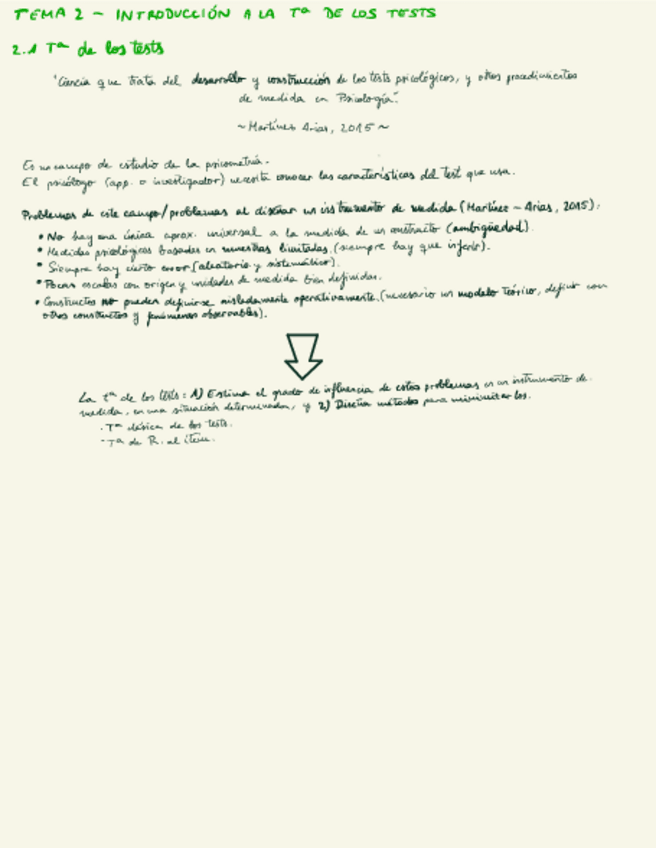 TEMA 2 - INTRODUCCIÓN A LA Tª DE LOS TESTS
2.1 Tª de los tests
"Ciencia que trata del desarrollo y construcción de los tests psicológicos, y otros procedimientos
de medida en Psicología".
~Martínez Arias, 2015~
Es un campo de estudio de la psicometría.
El psicólogo (app. o investigador) necesita conocer las características del test que usa.
Problemas de este campo/problemas al diseñar un instrumento de medida (Martínez - Arias, 2015):
• No hay una única aprox. universal a la medida de un constructo (ambigüedad).
• Medidas psicológicas basadas en muestras limitadas. (siempre hay que inferir).
• Siempre hay cierto error (aleatorio y sistemático).
• Pocas escalas con origen y unidades de medida bien definidas.
• Constructos no pueden definirse aisladamente operativamente. (necesario un modelo teórico, definir con
otros constructos y fenómenos observables).
La tª de los tests: 1) Estima el grado de influencia de estos problemas en un instrumento de
medida, en una situación determinada, y 2) Diseña métodos para minimizarlos.
- Tª clásica de los tests.
- Tª de R. al ítem.